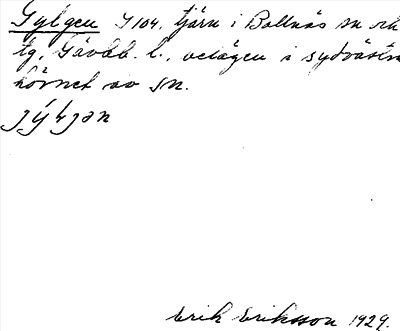 Gylgen S104. tjärn i Bollnäs sn och
tg, Gävleb. l., belägen i sydvästra
hörnet av sn.
jýlgan
Erik Eriksson 1929.